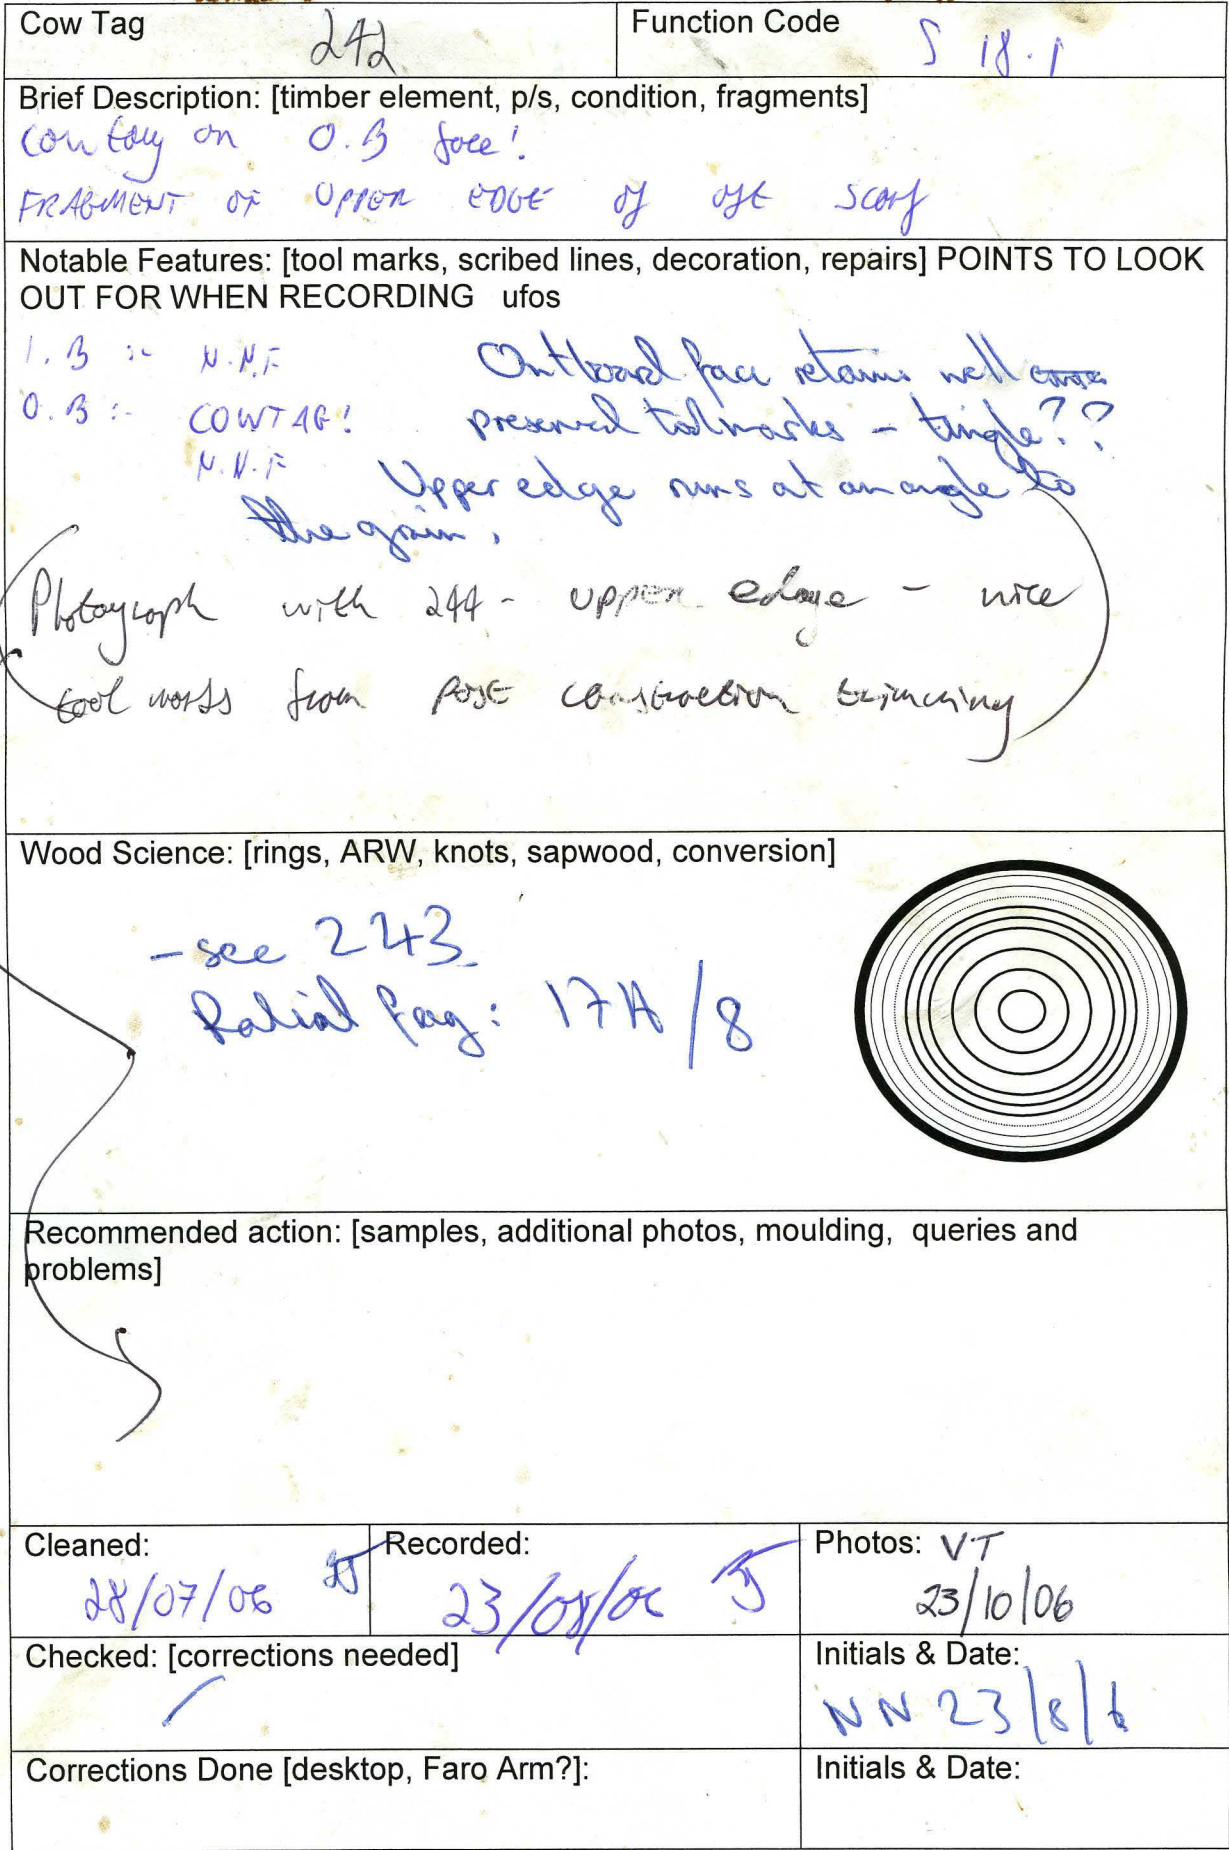 Cow Tag 242 Function Code S 18.1
Brief Description: [timber element, p/s, condition, fragments]
Cowtag on O.B face!
FRAGMENT OF UPPER EDGE of aft scarf
Notable Features: [tool marks, scribed lines, decoration, repairs] POINTS TO LOOK
OUT FOR WHEN RECORDING ufos
I.B :- N.N.F
O.B :- COWTAG!
N.N.F
Outboard face retains well
preserved toolmarks - tingle??
Upper edge runs at an angle to
the grain.
Photograph with 244 - UPPER edge - nice
tool marks from post construction trimming
Wood Science: [rings, ARW, knots, sapwood, conversion]
- see 243
Radial frag: 17H/8
Recommended action: [samples, additional photos, moulding, queries and
problems]
Cleaned: Recorded: Photos: VT
28/07/06 23/08/06 23/10/06
Checked: [corrections needed] Initials & Date:
NN 23/8/6
Corrections Done [desktop, Faro Arm?]: Initials & Date: